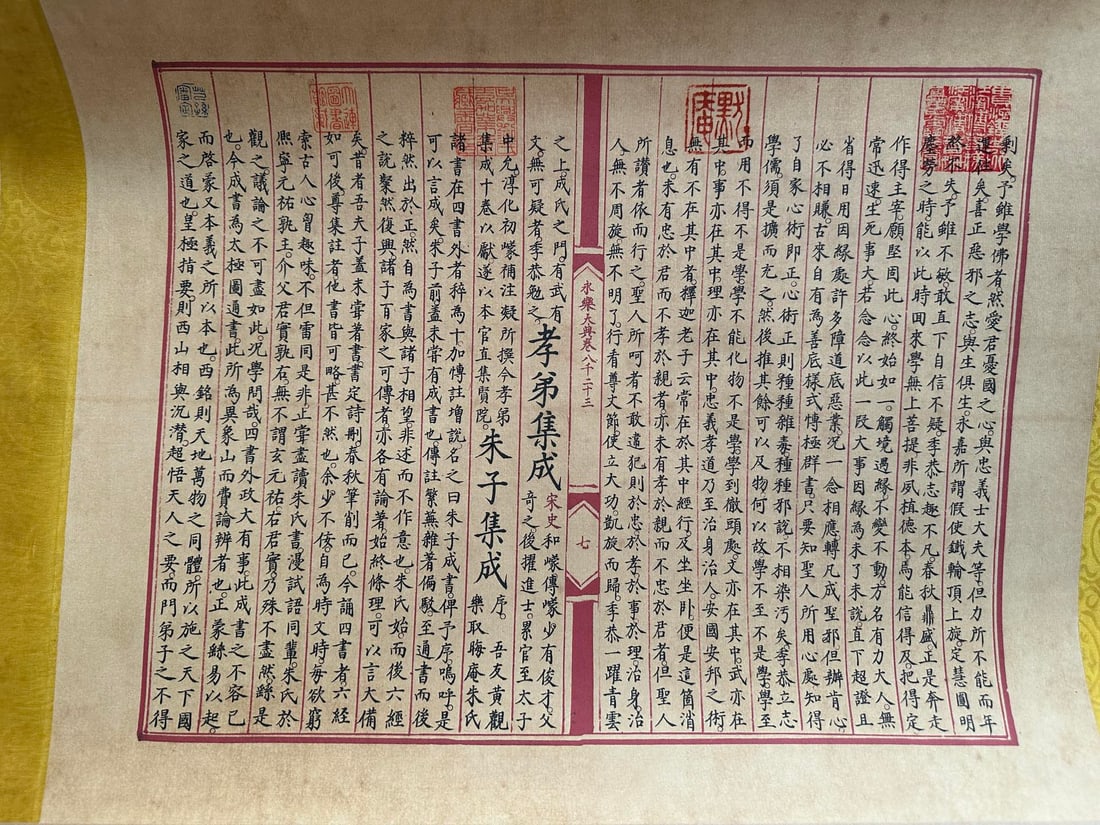 剩矣。予雖學佛者。然愛君憂國之心。與忠義士大夫等。但力所不能而年
運往矣。善正惡邪之志。與生俱生。永嘉所謂假使鐵輪頂上旋。定慧圓明
終不失。予雖不敏。敢直下自信不疑。季恭志趣不凡。春秋鼎盛。正是奔走
塵勞之時。能以此時回來學無上菩提。非夙植德本。焉能信得及。把得定。
作得主宰。願堅固此心。終始如一。觸境遇緣。不變不動。方名有力大人。無
常迅速。生死事大。若念念以此一段大事因緣為未了未說直下超證。且
省得日用因緣處許多障道底惡業。況一念相應轉凡成聖邪。但辦肯心。
必不相賺。古來自有為善底樣式。博極群書。只要知聖人所用心處。知得
了。自家心術即正。心術正則種種雜毒種種邪說。不相染汚矣。季恭立志
學儒。須是擴而充之。然後推其餘可以及物。何以故。學不至不是學。學至
而用不得不是學。學不能化物不是學。學到徹頭處。文亦在其中。武亦在
其中。事亦在其中。理亦在其中。忠義孝道。乃至治身治人。安國安邦之術。
無有不在其中者。釋迦老子云。常在於其中。經行及坐卧。便是這箇消
息也。未有忠於君而不孝於親者。亦未有孝於親而不忠於君者。但聖人
所讃者依而行之。聖人所呵者不敢違犯。則於忠於孝於事於理。治身治
人。無不周旋。無不明了。行看尊丈節使立大功。凱旋而歸。季恭一躍青雲
永樂大典卷八千二十三
七
之上。成氏之門。有武有
文。無可疑者。季恭勉之。
孝弟集成
宋史和㠓傳㠓少有俊才。父
中允。淳化初㠓補注凝所撰今孝弟
奇之。後擢進士。累官至太子
集成十卷以獻。遂以本官直集賢院。
朱子集成
序。吾友黃觀
樂取晦庵朱氏
諸書在四書外者。稡為十。加傳註增說。名之曰朱子成書。俾予序。嗚呼。是
可以言成矣。朱子前蓋未嘗有成書也。傳註繁蕪。雜著僞駁。至通書而後
粹然出於正。然自為書與諸子相望。非述而不作意也。朱氏始。而後六經
之說粲然復興。諸子百家之可傳者。亦各有論著。始終條理。可以言大備
矣。昔者吾夫子蓋未嘗著書。書定詩刪。春秋筆削而已。今誦四書者。六經
如可後。尊集註者。他書皆可略。甚不然也。余少不佞。自為時文時。每欲窮
索古人心曾趣味。不但雷同是非止。嘗盡讀朱氏書。漫試語同輩。朱氏於
熙寧元祐孰主。介父君實孰右。無不謂玄元祐右君實。乃殊不盡然。繇是
觀之。議論之不可盡如此。況學問哉。四書外政大有事。此成書之不容已
也。今成書為太極圖通書。此所為異象山而費論辨者也。正蒙繇易以起。
而啓蒙又本義之所以本也。西銘則天地萬物之同體。所以施之天下國
家之道也。皇極指要。則西山相與沉潛。超悟天人之要。而門弟子之不得